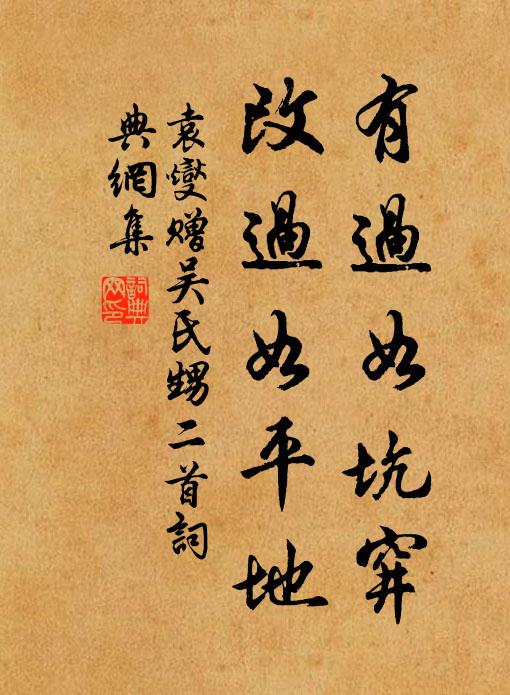 有過如坑穽
改過如平地
袁燮贈吴氏甥二首詞
典網集
詞典
网印